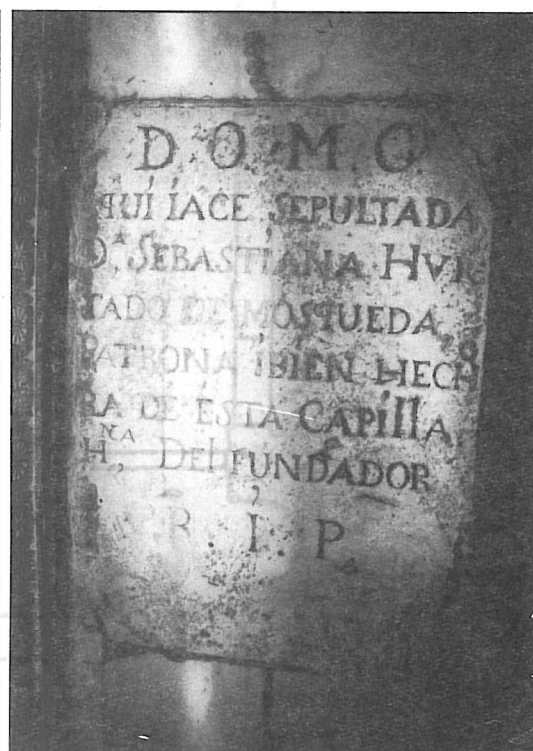 D. O. M. O
AQUÍ IACE SEPULTADA
D.ᴬ SEBASTIANA HVR
TADO DE MOSQUEDA,
PATRONA IBIEN HECHO
RA DE ESTA CAPILLA,
H.ᴺᴬ DEL FUNDADOR
R. I. P.